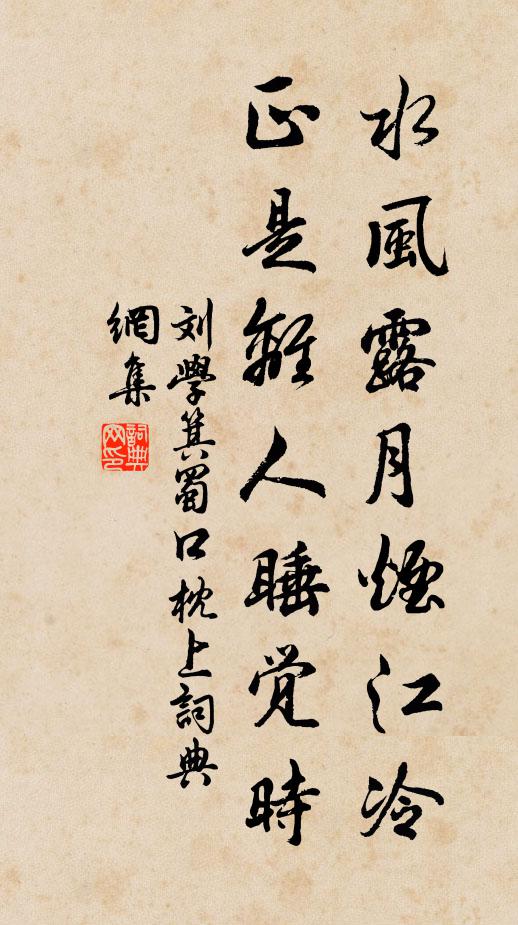 水風露月煙江冷
正是離人睡觉時
刘學箕蜀口枕上詞典
網集
詞典
网印